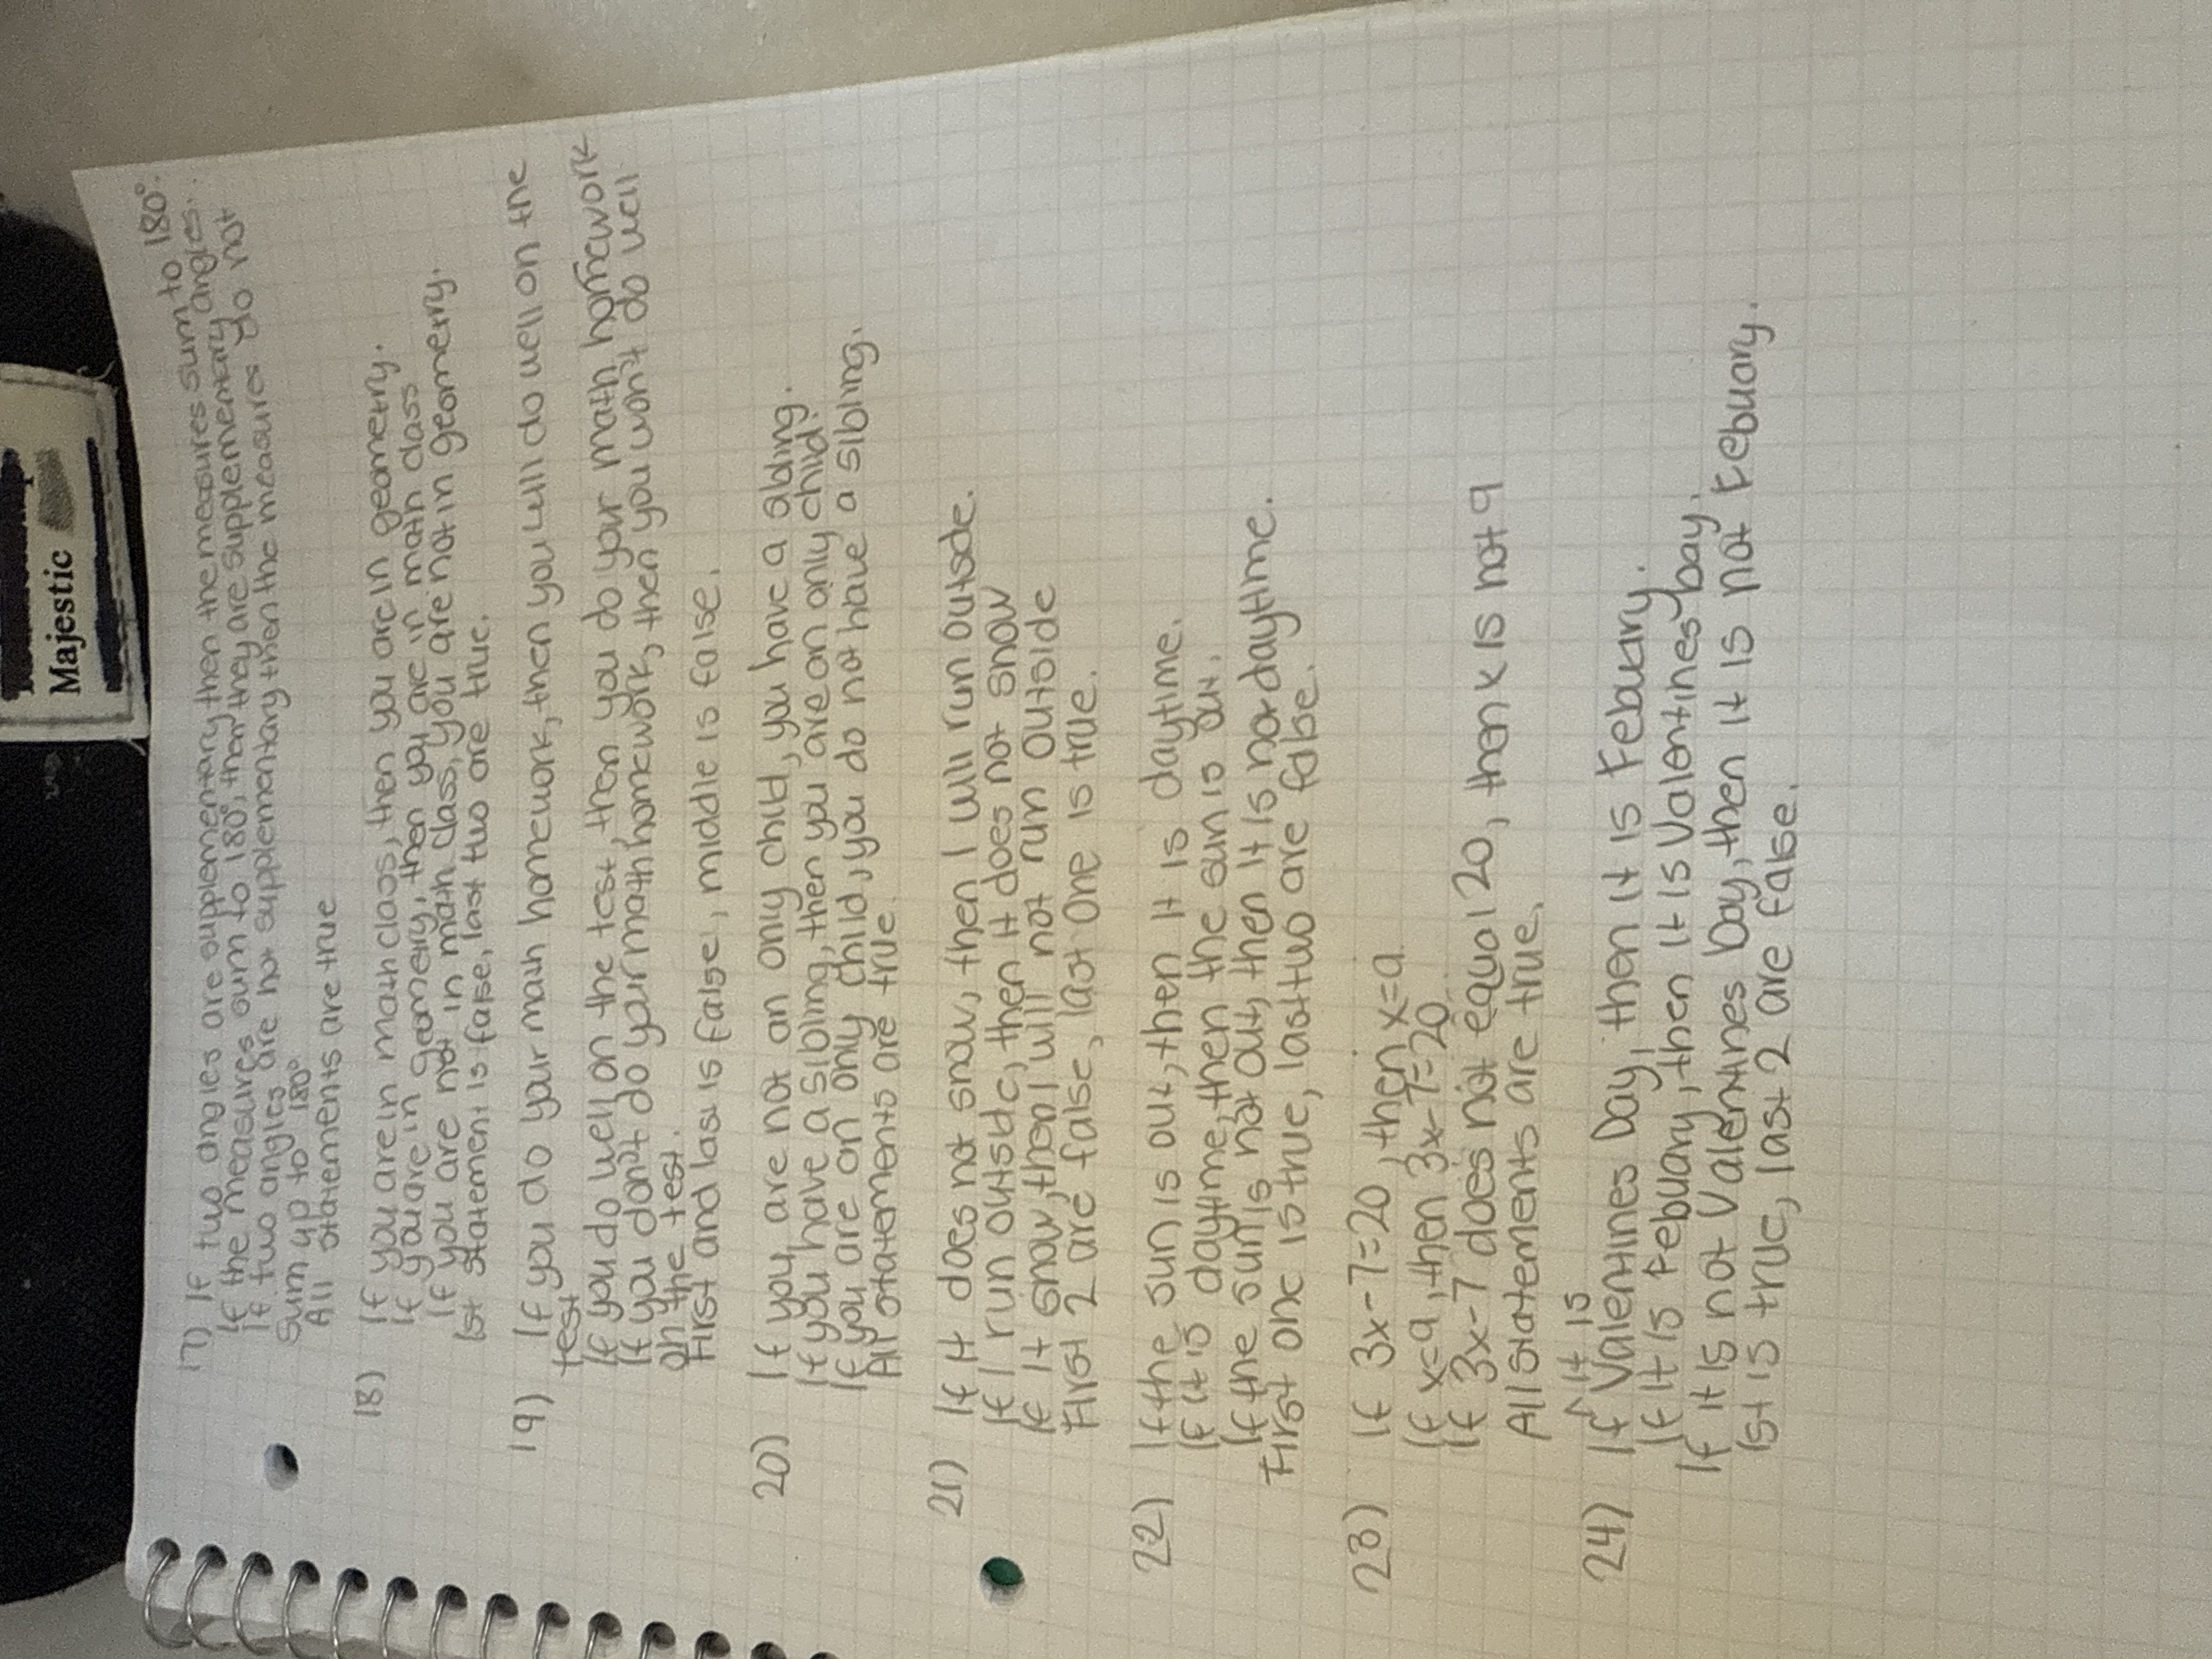 Majestic
17) If two angles are supplementary then the measures sum to 180°.
If the measures sum to 180°, then they are supplementary angles.
If two angles are not supplementary then the measures do not
sum up to 180°
All statements are true
18) If you are in math class, then you are in geometry.
If you are in geometry, then you are in math class
If you are not in math class, you are not in geometry.
1st statement is false, last two are true.
19) If you do your math homework, then you will do well on the
test
If you do well on the test, then you do your math homework
If you don't do your math homework, then you won't do well
on the test.
First and last is false, middle is false.
20) If you are not an only child, you have a sibling.
If you have a sibling, then you are an only child?
If you are an only child, you do not have a sibling.
All statements are true.
21) If it does not snow, then I will run outside.
If I run outside, then it does not snow
If it snow, then I will not run outside
First 2 are false, last one is true.
22) If the sun is out, then it is daytime.
If it is daytime, then the sun is out.
If the sun is not out, then it is not daytime.
First one is true, last two are false.
23) If 3x-7=20, then x=9.
If x=9, then 3x-7=20
If 3x-7 does not equal 20, then x is not 9
All statements are true.
24) If ^it is Valentines Day, then it is Febuary.
If it is Febuary, then it is Valentines Day.
If it is not Valentines Day, then it is not Febuary.
1st is true, last 2 are false.